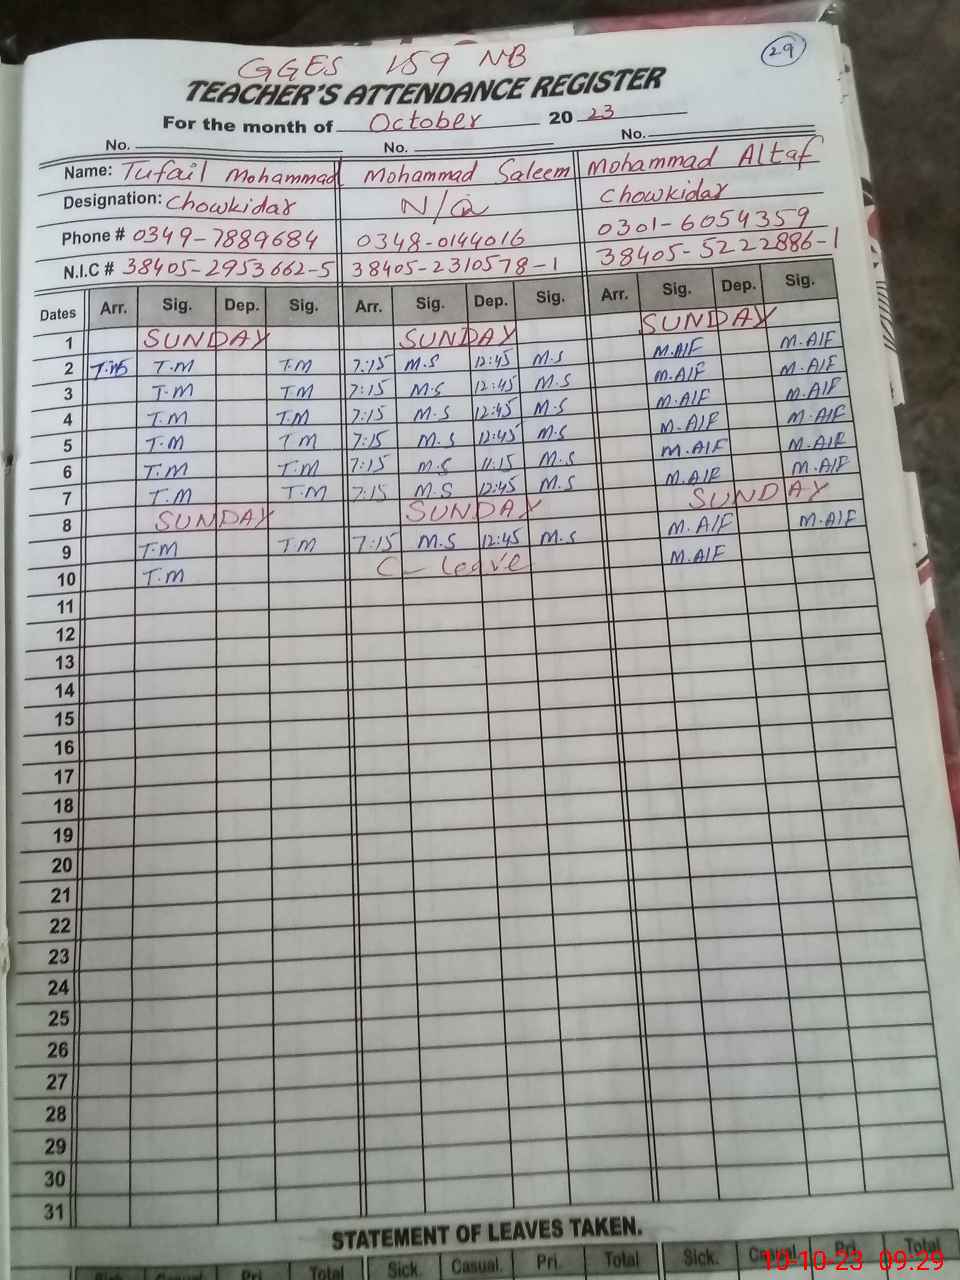 29
GGES 159 NB
TEACHER'S ATTENDANCE REGISTER
For the month of October 20 23
No. No. No.
Name: Tufail Mohammad Mohammad Saleem Mohammad Altaf
Designation: Chowkidar N/Q Chowkidar
Phone # 0349-7889684 0348-0144016 0301-6054359
N.I.C # 38405-2953662-5 38405-2310578-1 38405-5222886-1
Dates Arr. Sig. Dep. Sig. Arr. Sig. Dep. Sig. Arr. Sig. Dep. Sig.
1 SUNDAY SUNDAY SUNDAY
2 T.M T.M 7:15 M.S 12:45 M.S M.A/F M.A/F
3 T.M T.M 7:15 M.S 12:45 M.S M.A/F M.A/F
4 T.M T.M 7:15 M.S 12:45 M.S M.A/F M.A/F
5 T.M T M 7:15 M.S 12:45 M.S M.A/F M.A/F
6 T.M T.M 7:15 M.S 11:15 M.S M.A/F M.A/F
7 T.M T.M 7:15 M.S 12:45 M.S M.A/F M.A/F
8 SUNDAY SUNDAY SUNDAY
9 T.M T.M 7:15 M.S 12:45 M.S M.A/F M.A/F
10 T.M C- leave M.A/F
11
12
13
14
15
16
17
18
19
20
21
22
23
24
25
26
27
28
29
30
31
STATEMENT OF LEAVES TAKEN.
Sick. Casual. Pri. Total Sick. Casual. Pri. Total Sick. Casual. Pri. Total
10-10-23 09:29